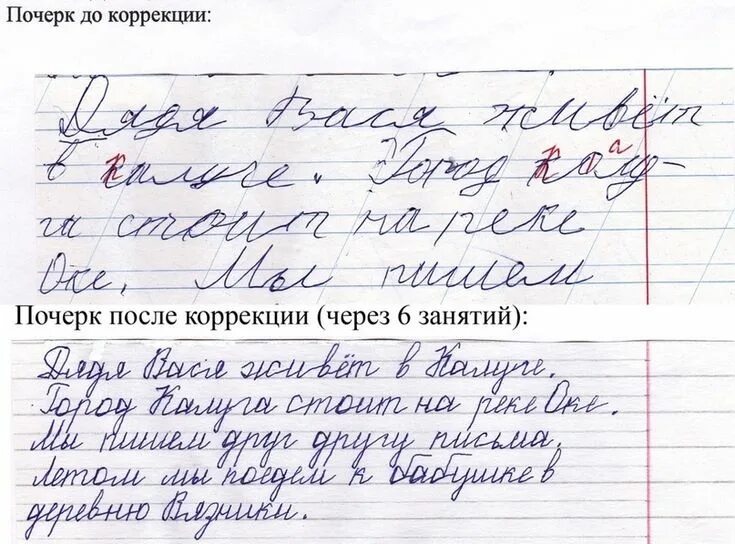 Почерк до коррекции:
Дядя Вася живёт
в калуге. Город калу-
га стоит на реке
Оке. Мы пишем
Почерк после коррекции (через 6 занятий):
Дядя Вася живёт в Калуге.
Город Калуга стоит на реке Оке.
Мы пишем друг другу письма.
Летом мы поедем к бабушке в
деревню Вязники.